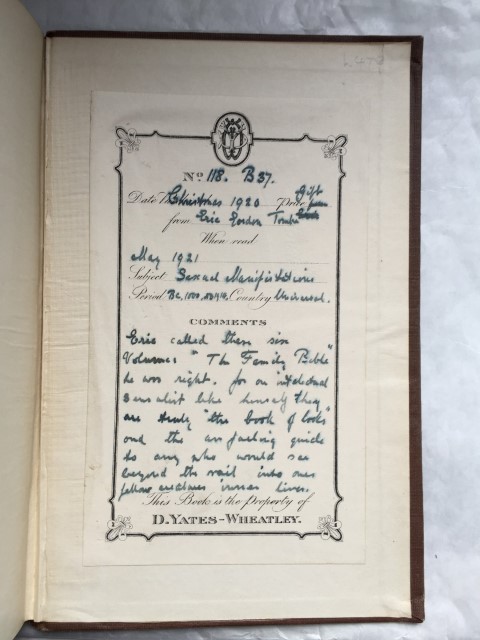 No 118. B37.
Date Christmas 1920 Price Gift
from Eric Gordon
When read
May 1921
Subject Sexual Manifestations
Period BC, Country Universal.
COMMENTS
Eric called these six
Volumes "The Family Bible"
he was right. for an intellectual
sensualist like himself they
are truly "the book of books"
and the unfailing guide
to any who would see
beyond the veil into ones
fellow creatures inner lives.
This Book is the Property of
D. YATES-WHEATLEY.